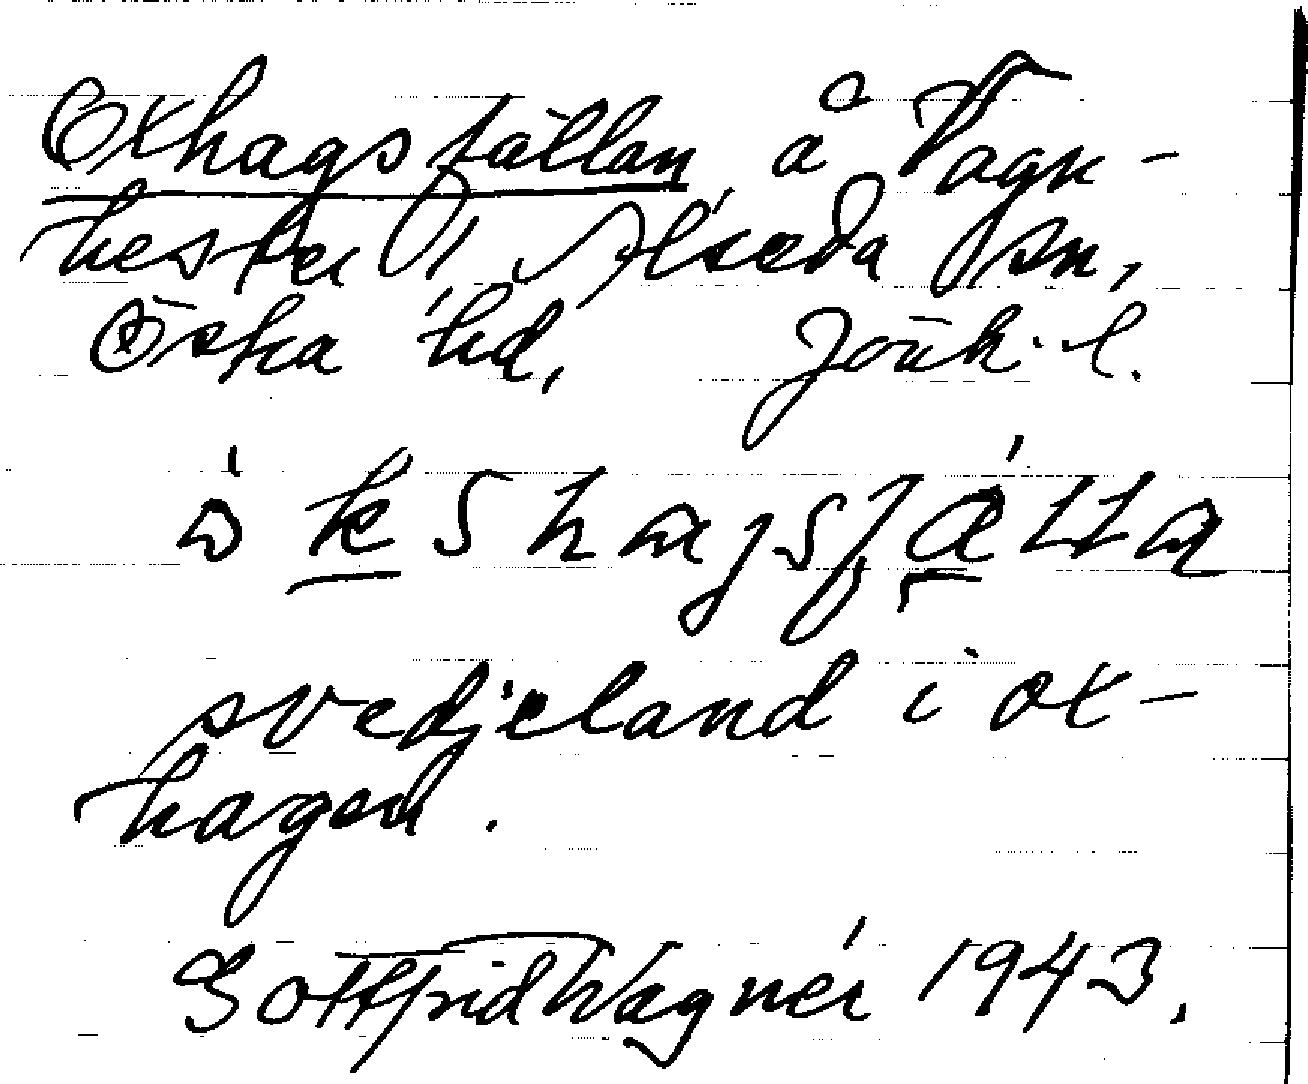 Oxhagsfällan, å Vagn-
hester, Alseda sn,
Östra hd, Jönk. l.
ò kshagsfälla
svedjeland i ox-
hagen.
Gottfrid Wagnér 1943.